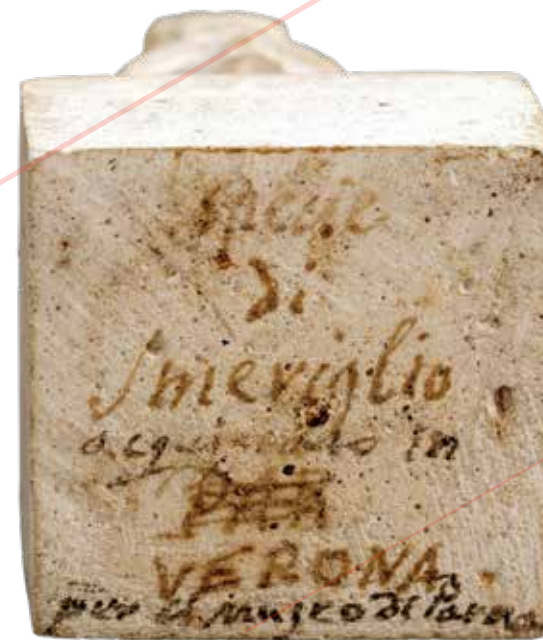 Specie
di
Smeriglio
acquistato in
VERONA.
per il museo di Parma